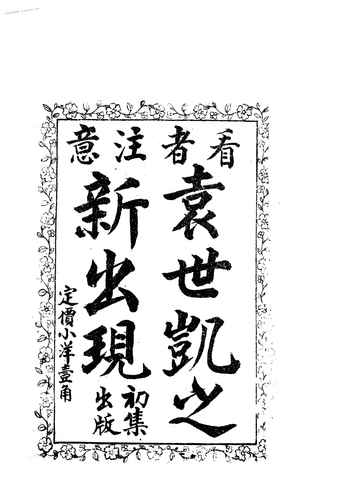 看者注意
袁世凱之
新出現
初集
出版
定價小洋壹角